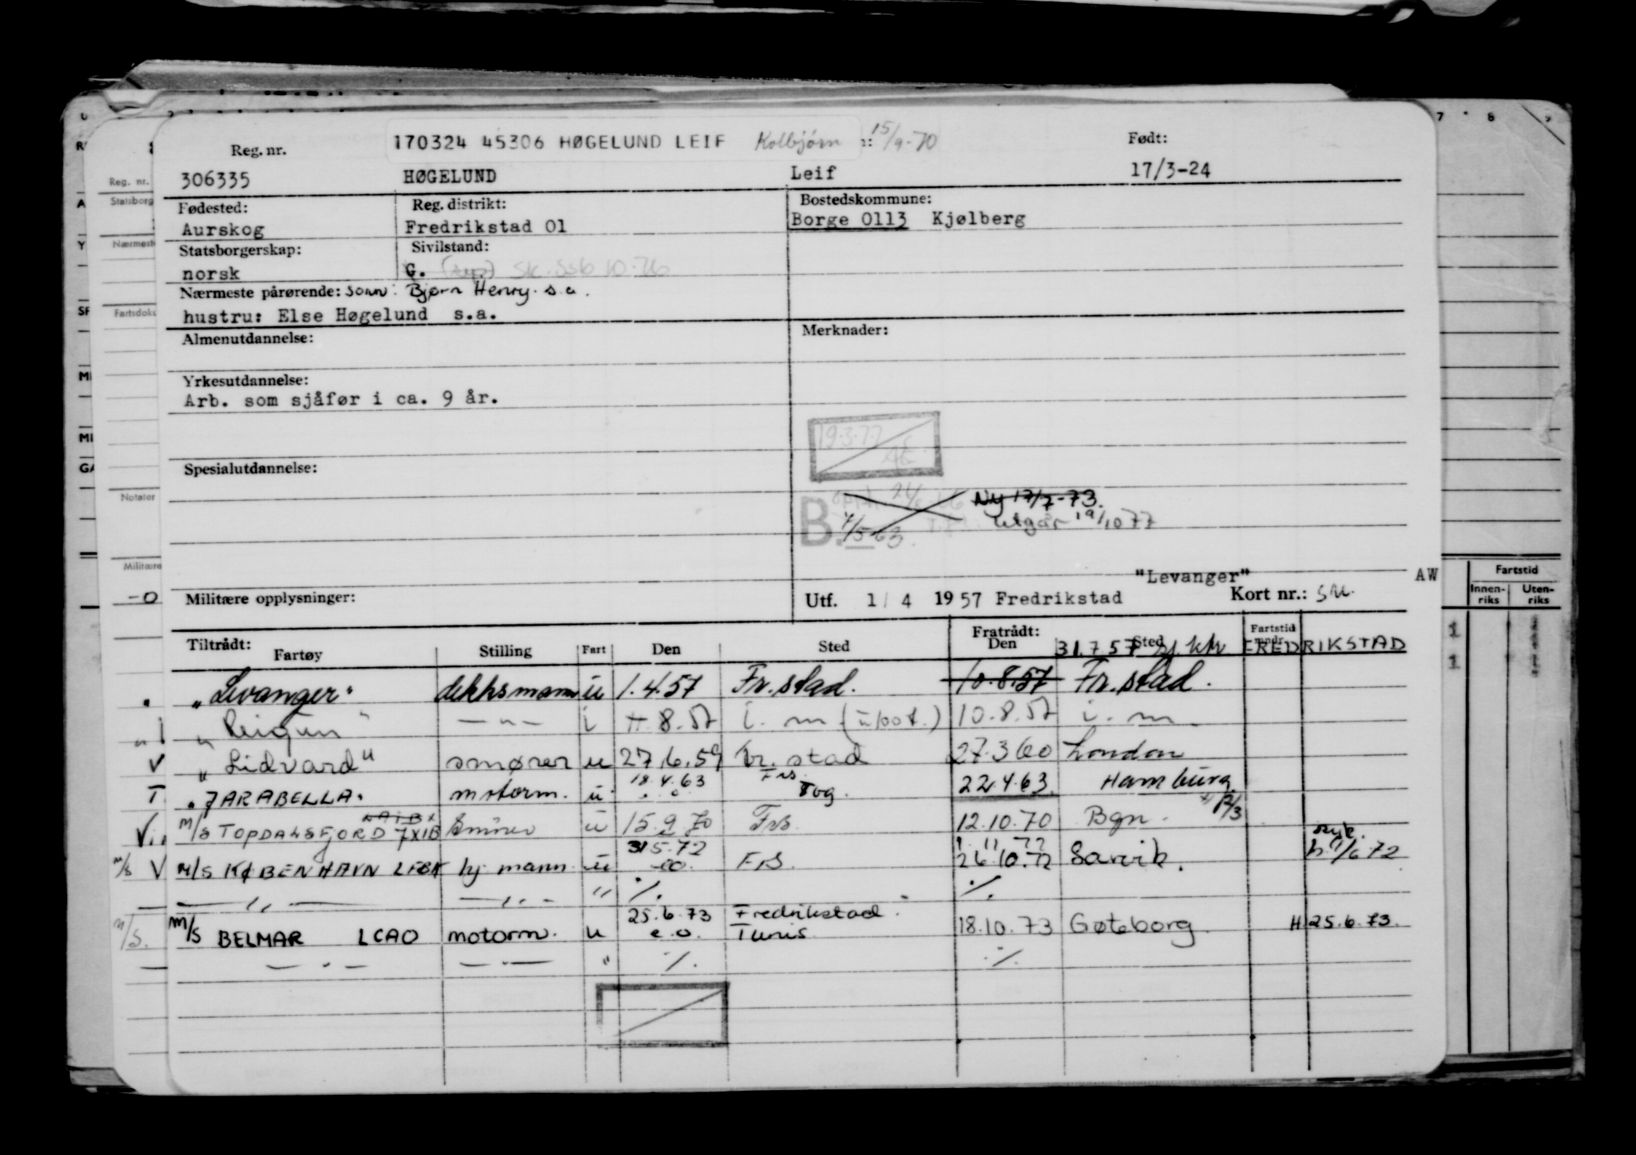 170324 45306 HØGELUND LEIF Kolbjørn 15/9-70
Reg. nr. Født:
306335 HØGELUND Leif 17/3-24
Fødested: Reg. distrikt: Bostedskommune:
Aurskog Fredrikstad 01 Borge 0113 Kjølberg
Statsborgerskap: Sivilstand:
norsk G.
Nærmeste pårørende: sønn: Bjørn Henry s.a.
hustru: Else Høgelund s.a.
Almenutdannelse: Merknader:
Yrkesutdannelse:
Arb. som sjåfør i ca. 9 år.
19.3.77
Spesialutdannelse:
Ny 17/7-73.
B. 7/5-63. Utgår 19/10 77
"Levanger" AW
Militære opplysninger: Utf. 1/4 1957 Fredrikstad Kort nr.:
Tiltrådt: Fratrådt: Fartstid
Fartøy Stilling Fart Den Sted Den Sted mndr.
31.7.57 FREDRIKSTAD
"Levanger" dekksmann u 1.4.57 Fr.stad. 10.8.57 Fr.stad.
— " — i 8.57 i. m 10.8.57 i. m
"Lidvard" smører u 27.6.59 Fr.stad 27.3.60 London
"JARABELLA" motorm. u 18.4.63 Frs. Tog. 22.4.63 Hamburg
M/S TOPDALSFJORD smører u 15.9.70 Frs. 12.10.70 Bgn.
M/S KØBENHAVN hj mann u 31.5.72 e.o. FrS. 1.11.72 26.10.72 Sarvik.
— " — — " — " ./. ./.
M/S BELMAR LCAO motorm. u 25.6.73 e.o. Fredrikstad Tunis 18.10.73 Gøteborg H 25.6.73.
— " — — " — " ./. ./.
Reg. nr.
Statsborg
Nærmest
Fartsdok
Notater
Militære
Fartstid
Innenriks Utenriks
1
1
7 8 9